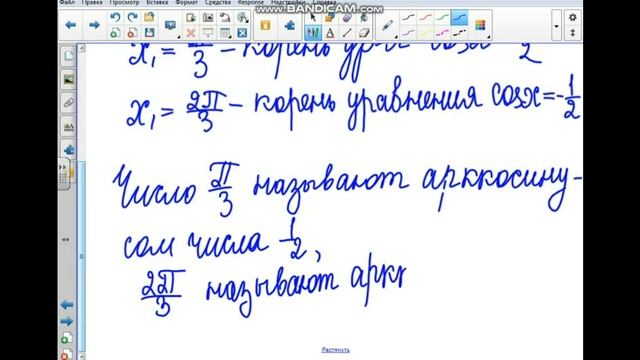 Правка Просмотр Вставка Формат Response Настройки Рисование Справка
WWW.BANDICAM.COM
x₁ = π/3 – корень
x₁ = 2π/3 – корень уравнения cosx = -1/2
Число π/3 называют арккосину-
сом числа 1/2,
2π/3 называют аркк
Растянуть